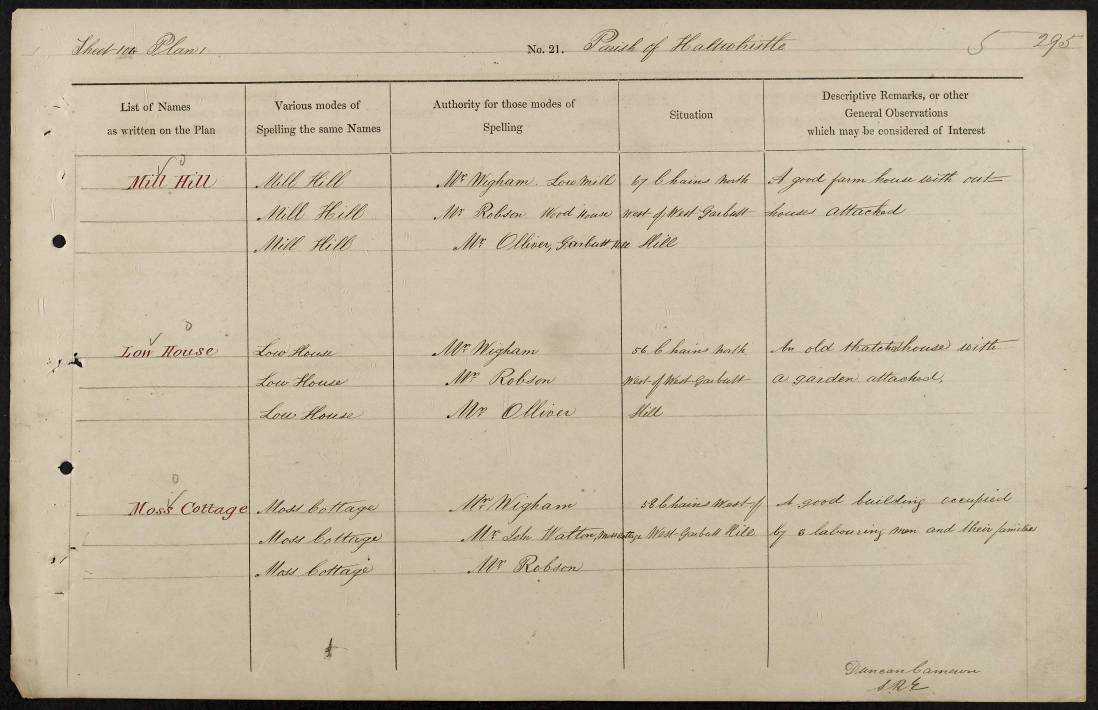 Sheet 106 Plan 1 No. 21. Parish of Haltwhistle 5 295
List of Names as written on the Plan
Various modes of Spelling the same Names
Authority for those modes of Spelling
Situation
Descriptive Remarks, or other General Observations which may be considered of Interest
Mill Hill Mill Hill Mr Wigham. Low Mill 67 Chains North A good farm house with out
Mill Hill Mr Robson Wood House West of West Garbutt house attached
Mill Hill Mr Olliver, Garbutt Hill Hill
Low House Low House Mr Wigham 56 Chains North An old thatched house with
Low House Mr Robson West of West Garbutt a garden attached.
Low House Mr Olliver Hill
Moss Cottage Moss Cottage Mr Wigham 58 Chains West of A good building occupied
Moss Cottage Mr John Watton, Moss Cottage West Garbutt Hill by 3 labouring men and their families
Moss Cottage Mr Robson
Duncan Cameron
S.R.E.